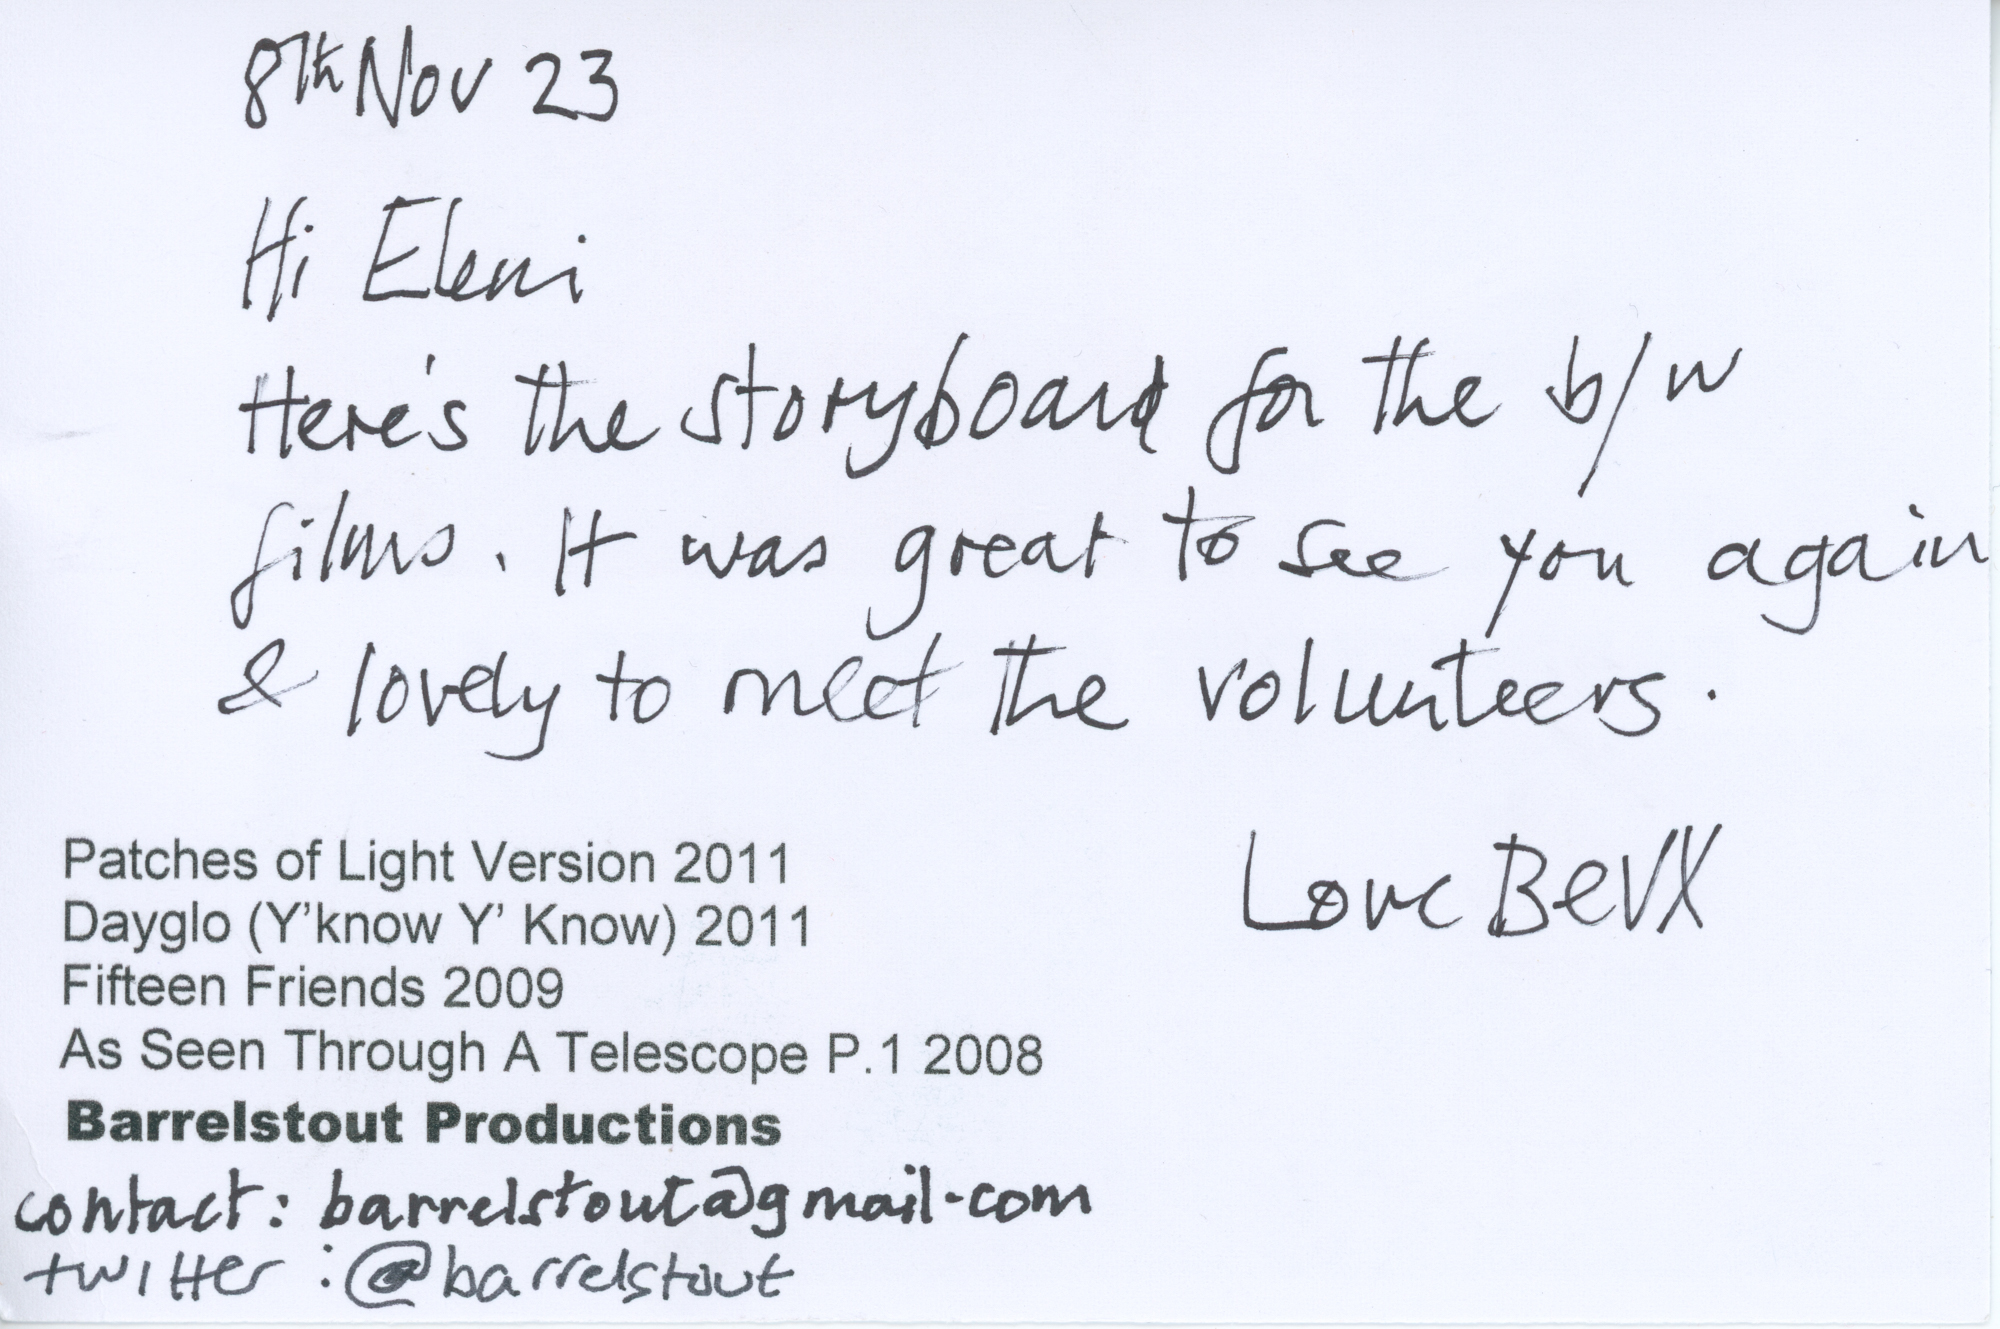 8th Nov 23
Hi Eleni
Here's the storyboard for the b/w
films. It was great to see you again
& lovely to meet the volunteers.
Love Bev X
Patches of Light Version 2011
Dayglo (Y'know Y' Know) 2011
Fifteen Friends 2009
As Seen Through A Telescope P.1 2008
Barrelstout Productions
contact: barrelstout@gmail.com
twitter: @barrelstout